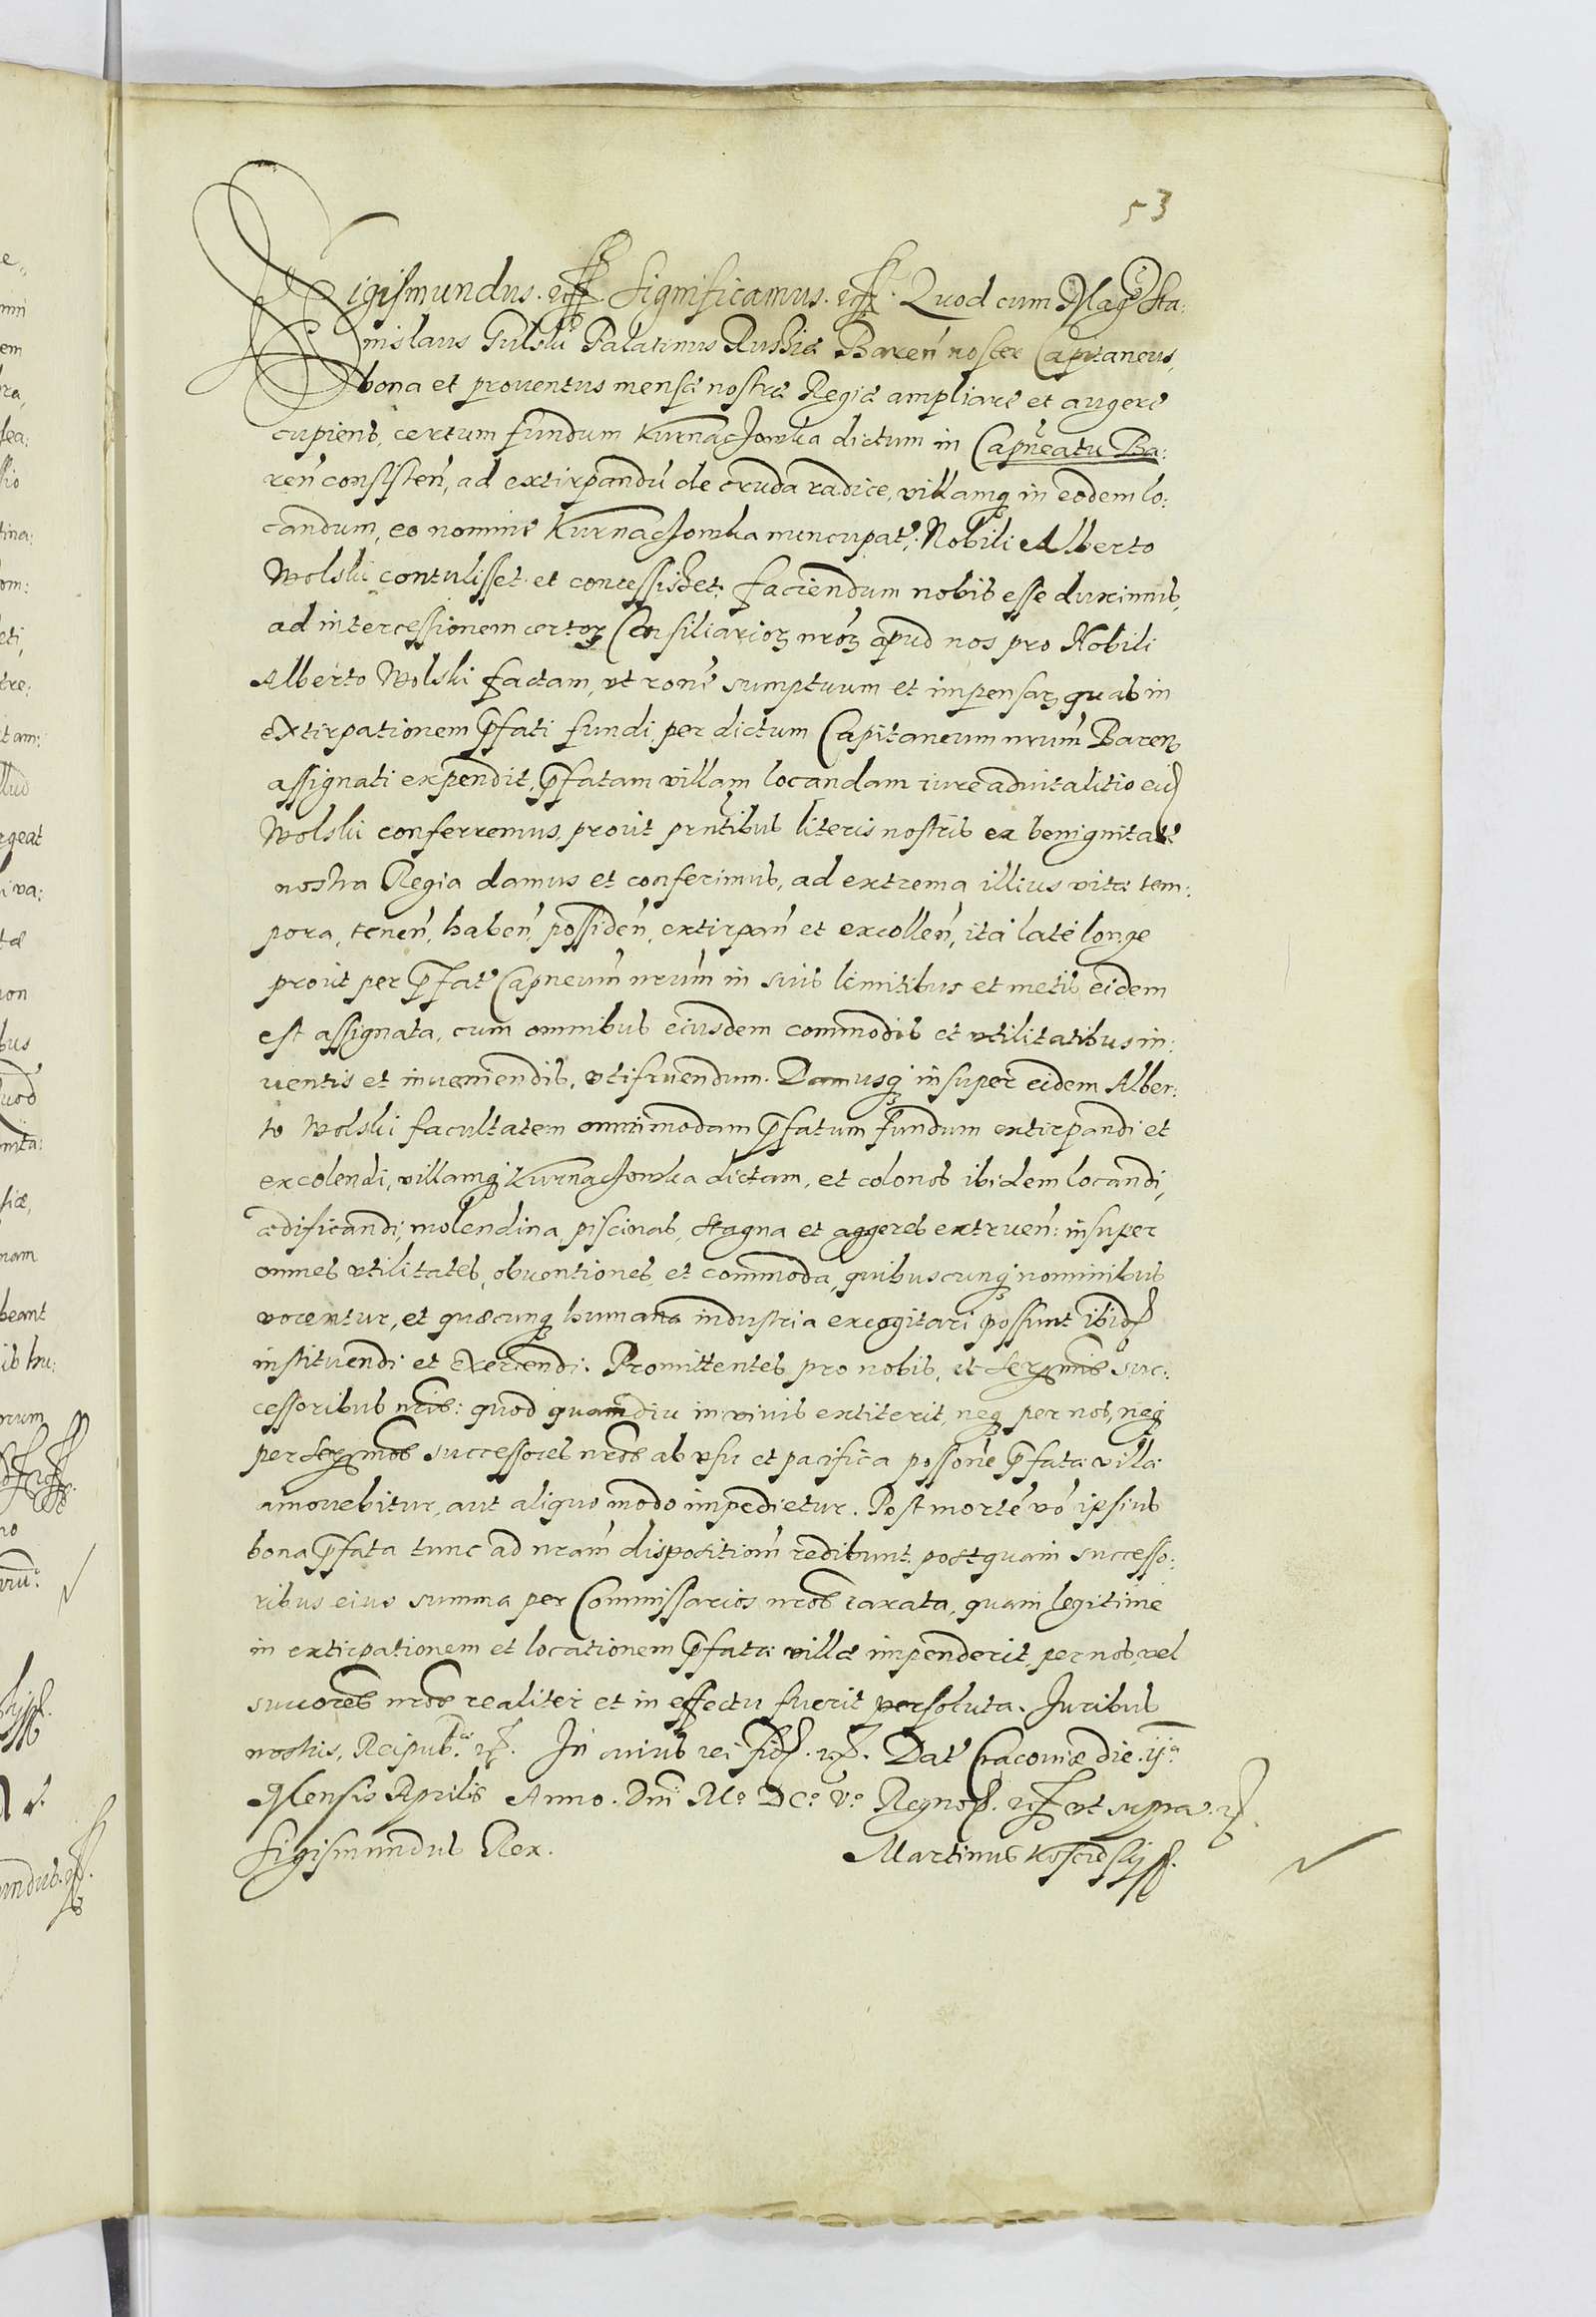 53
Sigismundus. etc. Significamus. etc. Quod cum Magcus Sta:
nislaus Gulski Palatinus Russiæ Baren̄ noster Capitaneus,
bona et prouentus mensæ nostræ Regiæ ampliare et augere
cupiens, certum fundum Kurnaczowka dictum in Capneatu Ba:
ren̄ consisten̄, ad extirpandū de cruda radice, villamq in eodem lo:
candum, eo nomine Kurnaczowka nuncupat. Nobili Alberto
Wolski contulisset et concessisset, faciendum nobis esse duximus,
ad intercessionem certoꝝ Consiliarioꝝ nr̄oꝝ apud nos pro Nobili
Alberto Wolski factam, vt ron̄e sumptuum et impensaꝝ quas in
extirpationem p̄fati fundi per dictum Capitaneum nrūm Baren̄
assignati expendit, p̄fatam villam locandam iure aduitalitio eid
Wolski conferremus, prout pn̄tibus literis nostris ex benignitate
nostra Regia damus et conferimus, ad extrema illius vitæ tem:
pora, tenen̄, haben̄, possiden̄, extirpan̄ et excollen̄, ita latè longè
prout per p̄fat Capneum̄ nrūm in suis limitibus et metis eidem
est assignata, cum omnibus eiusdem commodis et vtilitatibus in:
uentis et inueniendis, vtifruendum. Damusq insuper eidem Alber:
to Wolski facultatem omnimodam p̄fatum fundum extirpandi et
excolendi, villamq Kurnaczowka dictam, et colonos ibidem locandi,
ædificandi, molendina, piscinas, stagna et aggeres extruen: insuper
omnes vtilitates, obuentiones, et commoda, quibuscunq nominibus
vocentur, et quæcunq humana industria excogitari possunt ibid
instituendi et exercendi. Promittentes pro nobis, et Sermis suc:
cessoribus nris: quod quamdiu in viuis extiterit, neq per nos, neq
per Sermos successores nros ab vsu et pacifica posson̄e p̄fatæ villæ
amouebitur, aut aliquo modo impedietur. Post mortē vō ipsius
bona p̄fata tunc ad nram̄ dispositiom̄ redibunt, postquam successo:
ribus eius summa per Commissarios nros taxata, quam legitime
in extirpationem et locationem p̄fatæ villæ impenderit, per nos, vel
succores nros realiter et in effectu fuerit persoluta. Juribus
nostris, Reipub. etc. In cuius rei fid. etc. Dat Cracoviæ die. ij.a
Mensis Aprilis Anno. Dni Mo DCo Vo Regnor. etc vt supra. etc.
Sigismundus Rex. Martinus